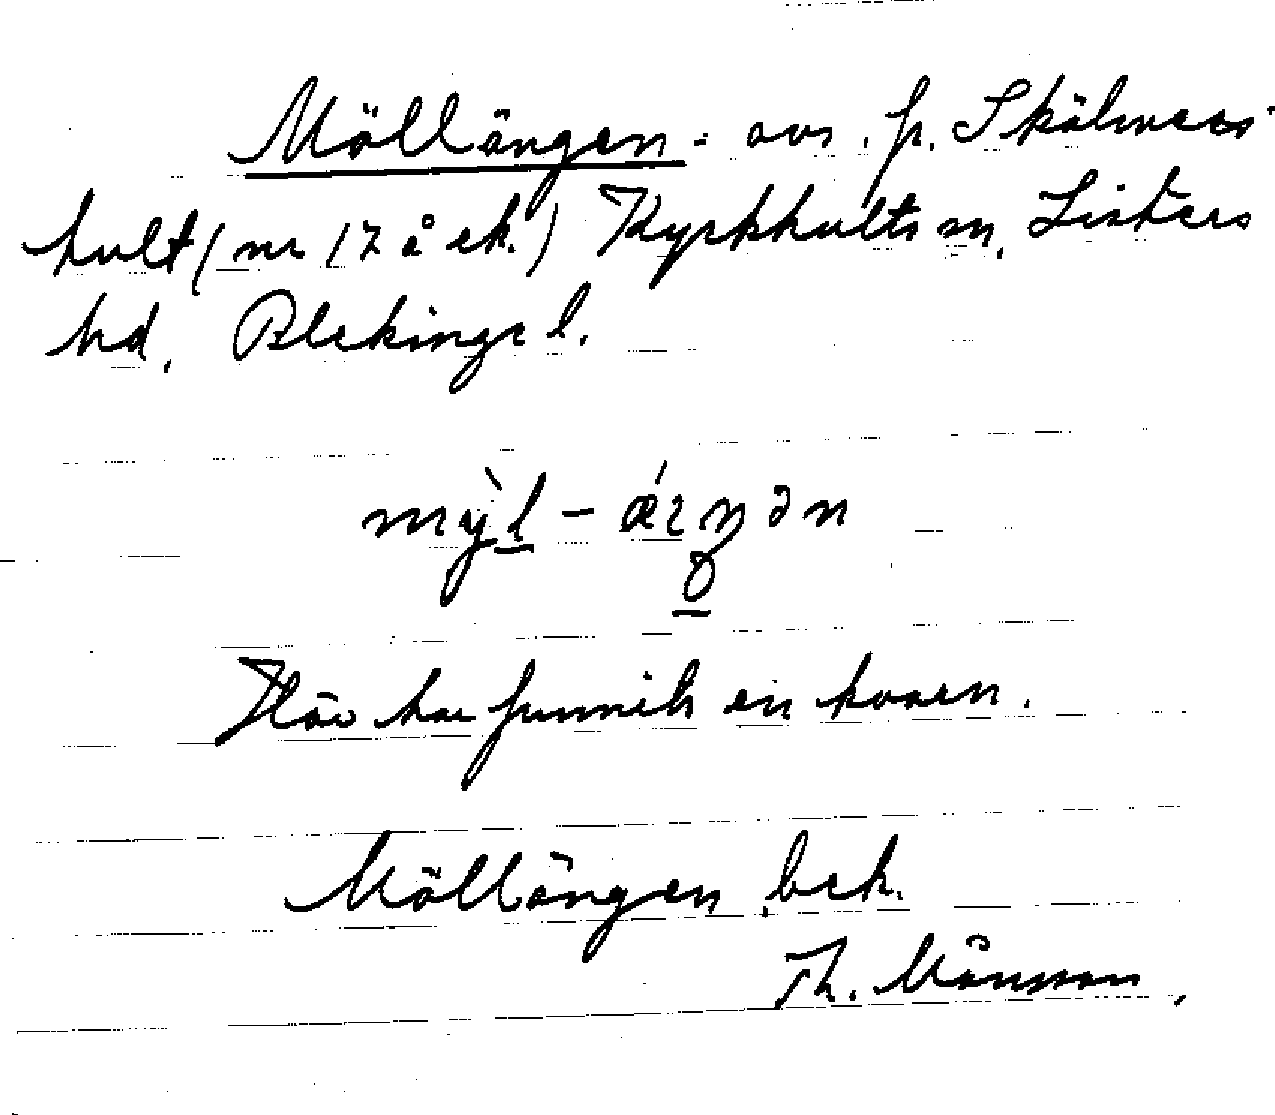 Möllängen - avs. p. Skälmers-
hult (nr 17 å ek.) Kyrkhults sn, Listers
hd, Blekinge l.
Här har funnits en kvarn.
Möllängen bek.
Th. Månsson,